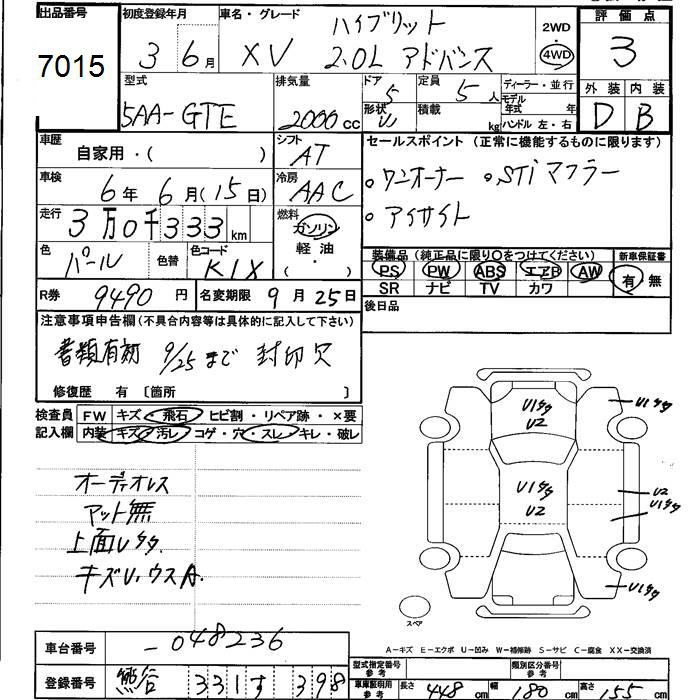 出品番号 初度登録年月 車名・グレード ハイブリット 2WD 評価点
7015 3 6月 XV 2.0L アドバンス 4WD 3
型式 排気量 ドア 5 定員 5人 ディーラー・並行 外装 内装
5AA-GTE 2000cc 形状 積載 kg モデル年式 年 D B
ハンドル 左・右
車歴 自家用・( ) シフト AT セールスポイント (正常に機能するものに限ります)
車検 6年 6月(15日) 冷房 AAC 。ワンオーナー 。STiマフラー
走行 3万0千333km 燃料 ガソリン 軽油 ( ・ ) 。アイサイト
色 パール 色替 色コード K1X 装備品(純正品に限り○をつけてください) 新車保証書
PS PW ABS エアB AW 有・無
SR ナビ TV カワ
R券 9490円 名変期限 9月25日 後日品
注意事項申告欄(不具合内容等は具体的に記入して下さい)
書類有効 9/25まで 封印欠
修復歴 有 〔箇所 〕
検査員 FW キズ・飛石・ヒビ割・リペア跡・×要
記入欄 内装 キズ・汚レ・コゲ・穴・スレ・キレ・破レ
オーディオレス
マット無
上面Uタタ
キズU.ウスA.
U1タタ
U2
U1タタ
U1タタ
U2
U2
U1タタ
U1タタ
スペア
A-キズ E-エクボ U-凹み W-補修跡 S-サビ C-腐食 XX-交換済
車台番号 -048236 型式指定番号 参考 類別区分番号 参考
登録番号 熊谷 331す 398 車庫証明用 参考 長さ 448cm 幅 180cm 高さ 155cm